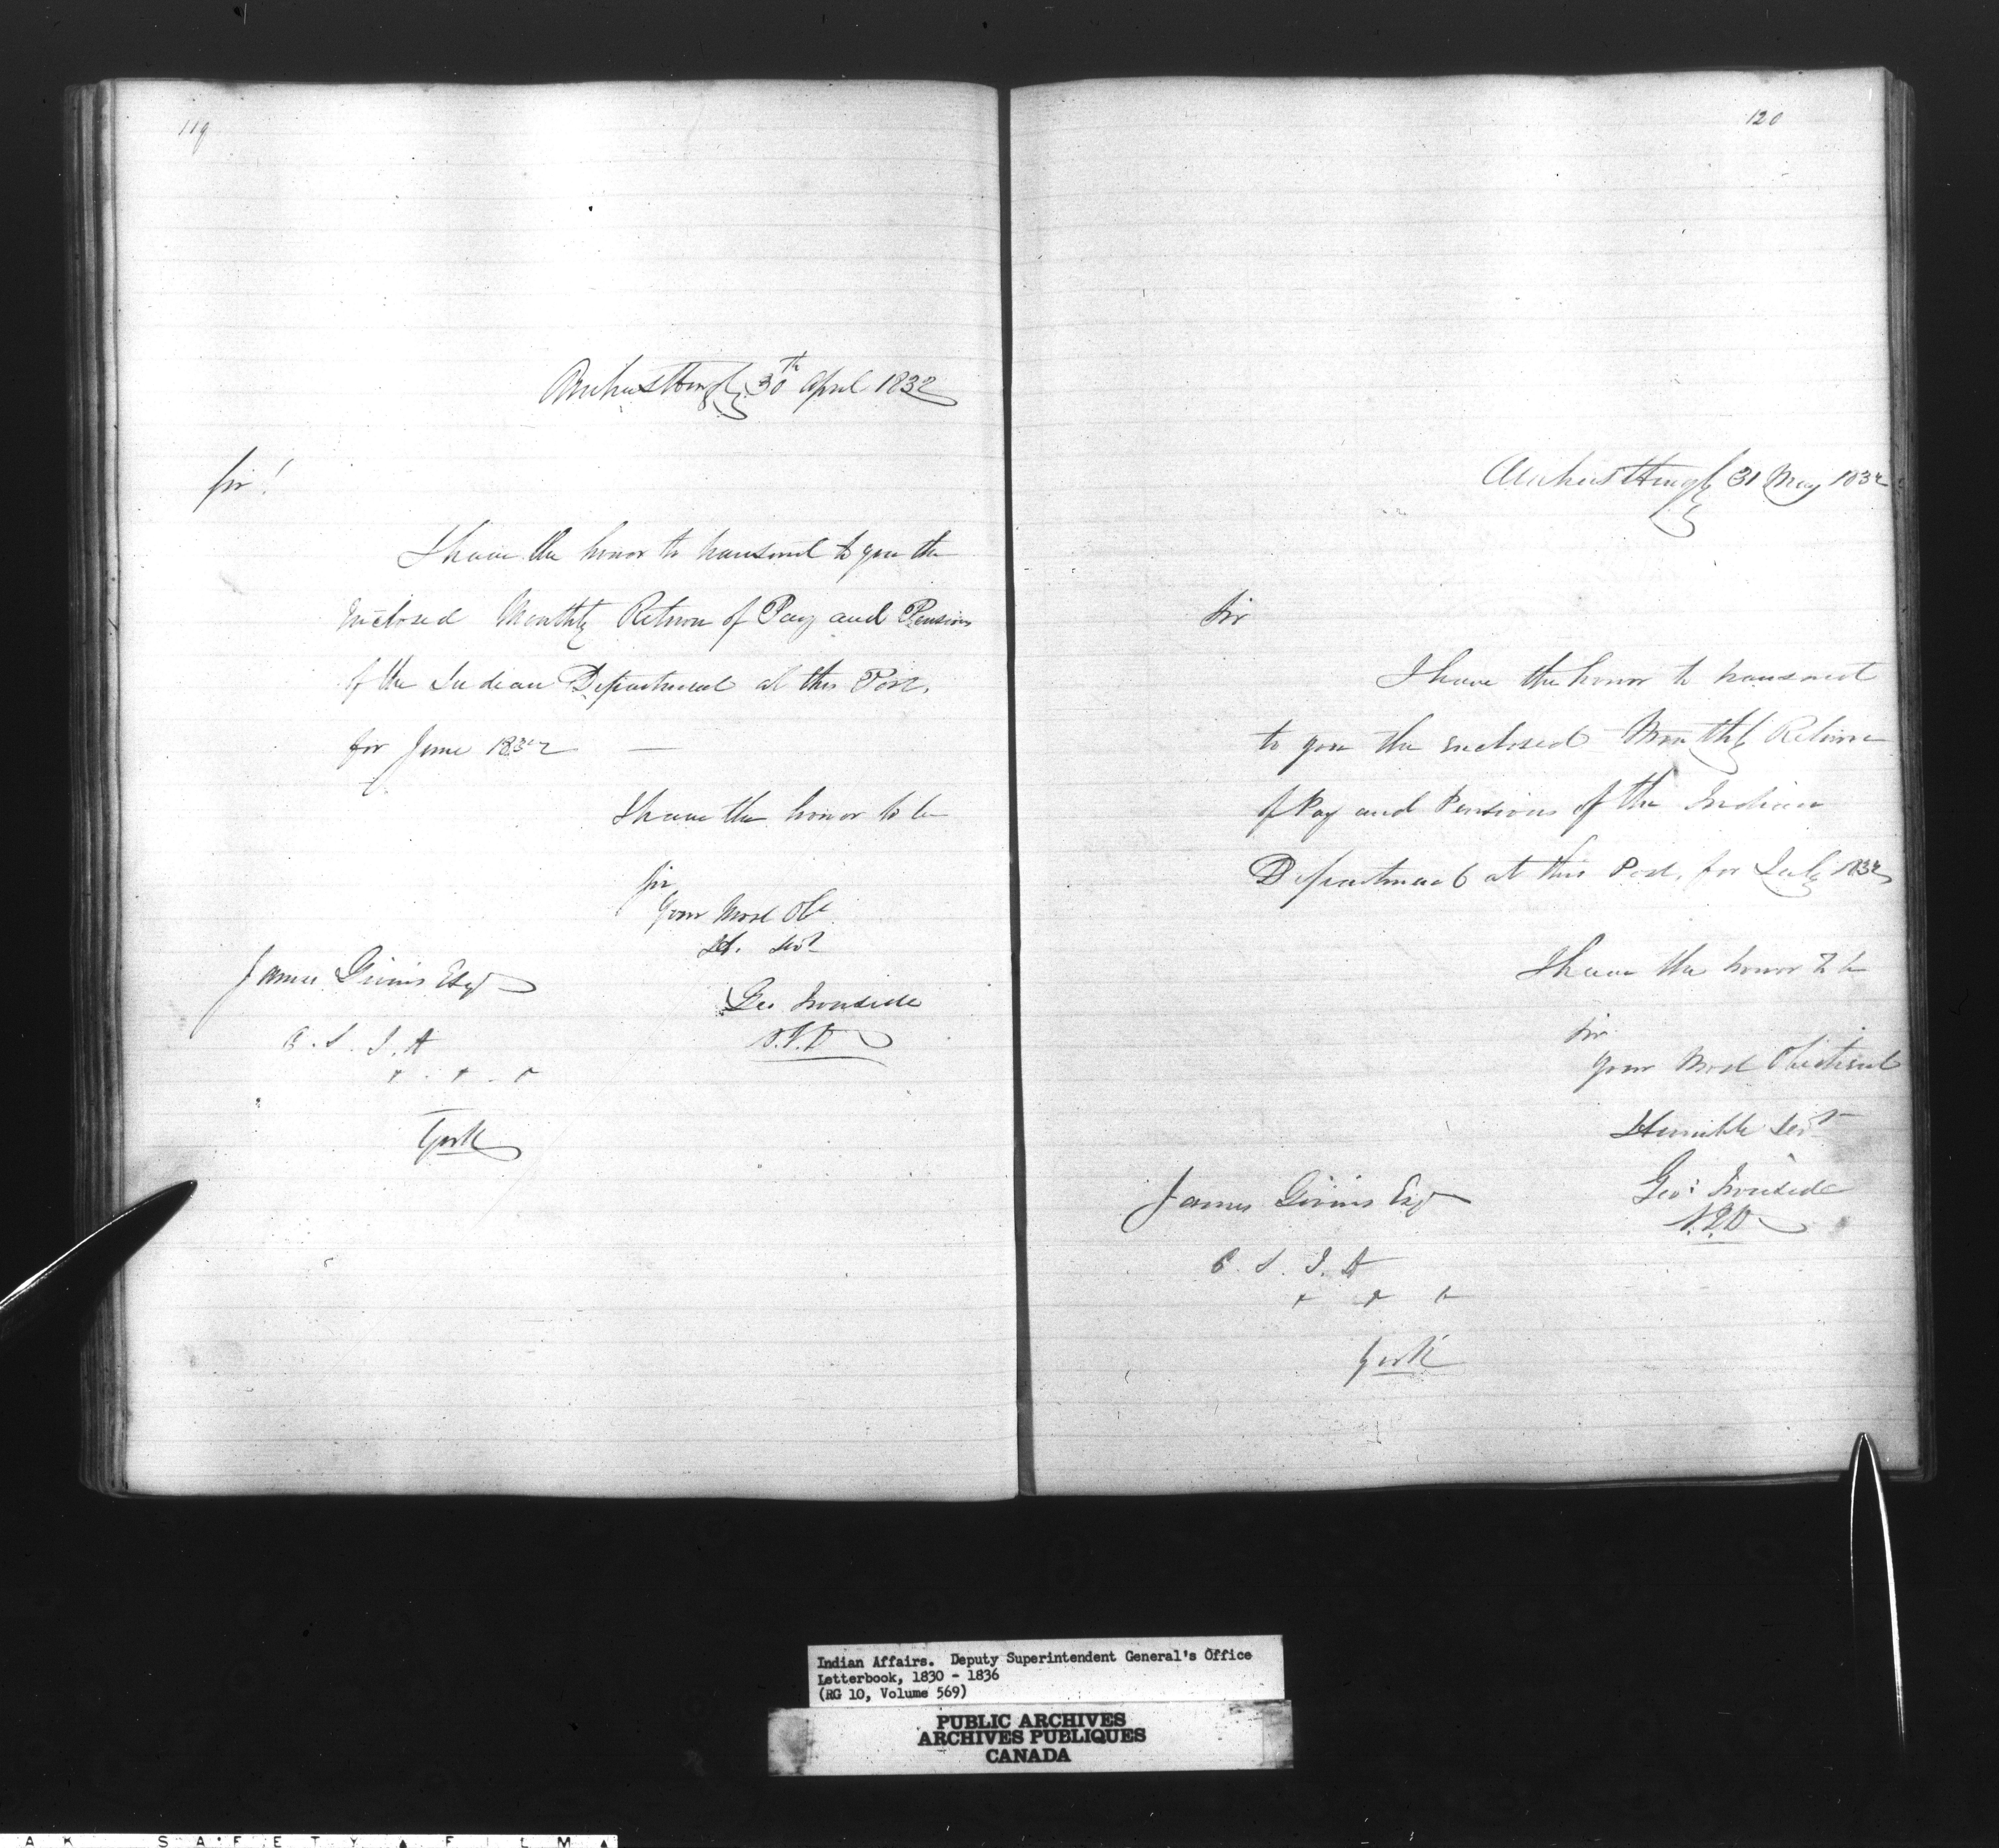 119
Amherstburg 30th April 1832
Sir!
I have the honor to transmit to you the
inclosed Monthly Return of Pay and Pensions
of the Indian Department at this Post,
for June 1832 —
I have the honor to be
Sir
Your Most Obt
H. Servt
Geo Ironside
S.I.A
James Givins Esqr
C. S. I. A
York
120
Amherstburg 31 May 1832
Sir
I have the honor to transmit
to you the enclosed Monthly Return
of Pay and Pensions of the Indian
Department at this Post, for July 1832
I have the honor to be
Sir
Your Most Obedient
Humble Servt
Geo: Ironside
S.I.A
James Givins Esqr
C. S. I. A
York
Indian Affairs. Deputy Superintendent General's Office
Letterbook, 1830 - 1836
(RG 10, Volume 569)
PUBLIC ARCHIVES
ARCHIVES PUBLIQUES
CANADA
A K SAFETY ▲ FILM ▲